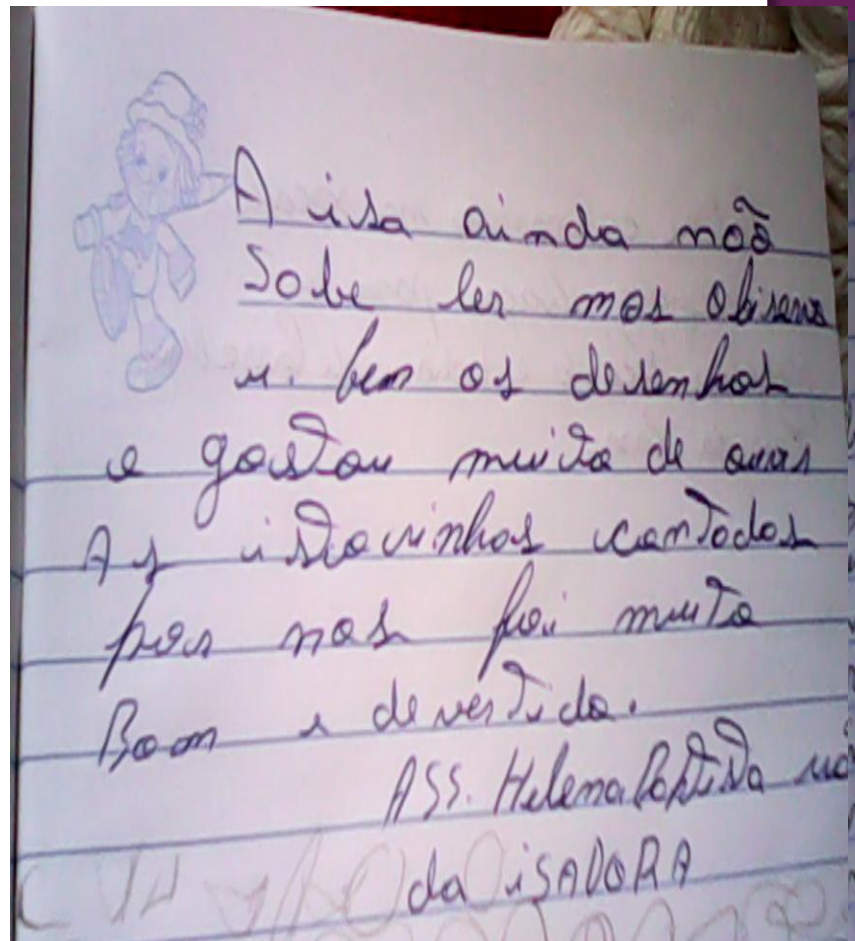 A isa ainda não
Sabe ler mas observo
u. bem os desenhos
e gostou muito de ouvir
As istorinhas contadas
por nos foi muito
Bom e devertido.
ASS. Helena
da iSADORA